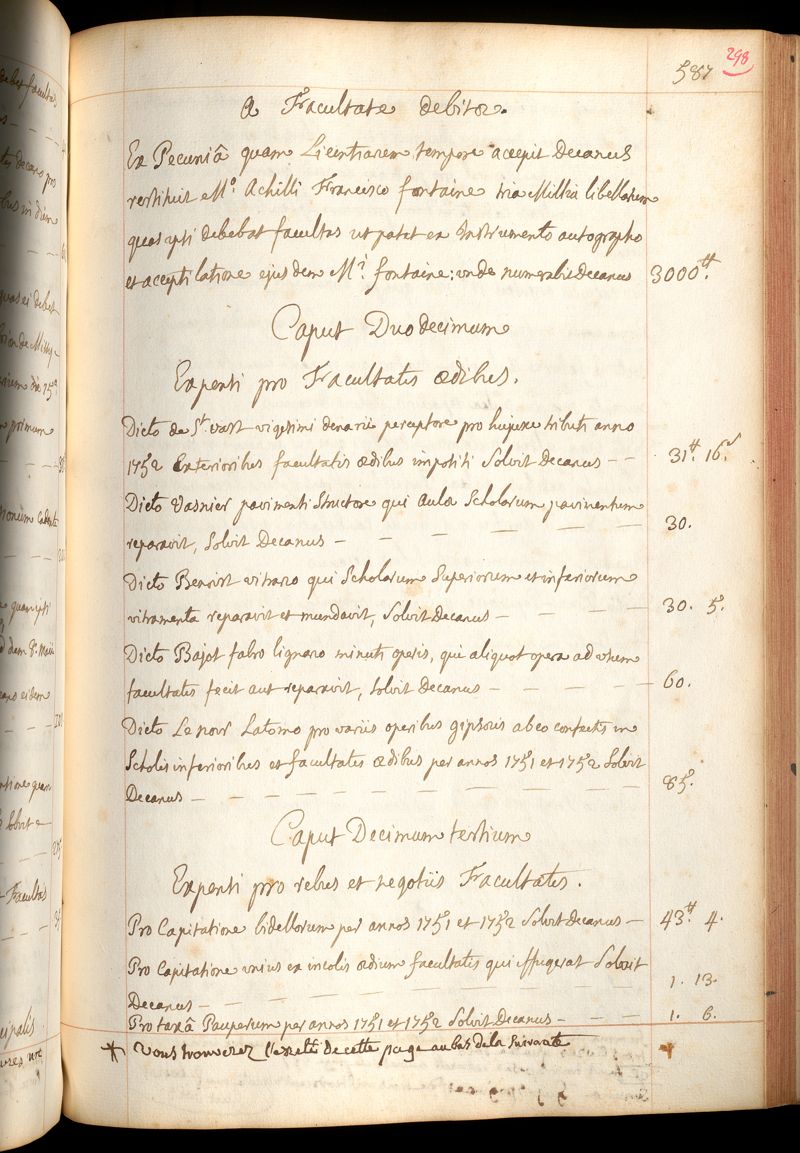 587
298
A Facultate debitæ.
Ex Pecuniâ quam Licentiarum tempore accepit Decanus
restituit M.º Achilli Francisco fontaine tria Millia libellarum
quas ipsi debebat facultas ut patet ex Instrumento autographo
et acceptilatione ejusdem M.ⁱ fontaine; unde numerabit Decanus 3000.ᵗᵗ
Caput Duodecimum
Expensi pro Facultatis ædibus.
Dicto de S.ᵗ vast vigesimi denarii perceptore pro hujusce tributi anno
1752 Exterioribus facultatis ædibus impositi Solvit Decanus – – 31.ᵗᵗ 16.ˢ
Dicto Vasnier pavimenti Structore qui Aulæ Scholarum pavimentum
reparavit, Solvit Decanus – – – – – – 30.
Dicto Benoist vitrario qui Scholarum Superiorum et inferiorum
vitramenta reparavit et mundavit, Solvit Decanus – – – – 30. 5.ˢ
Dicto Bajot fabro lignario minuti operis, qui aliquot opera ad usum
facultatis fecit aut reparavit, Solvit Decanus – – – – – 60.
Dicto Le noir Latomo pro variis operibus gipseis ab eo confectis in
Scholis inferioribus et facultatis ædibus per annos 1751 et 1752 Solvit
Decanus – – – – – – – – – 85.
Caput Decimum tertium
Expensi pro rebus et negotiis Facultatis.
Pro Capitatione bidellorum per annos 1751 et 1752 Solvit Decanus – 43.ᵗᵗ 4.
Pro Capitatione unius ex incolis ædium facultatis qui effugerat Solvit
Decanus – – – – – – – – – 1. 13.
Pro taxâ Pauperum per annos 1751 et 1752 Solvit Decanus – – – – 1. 6.
* Vous trouverez l'exalté de cette page au bas de la Suivante